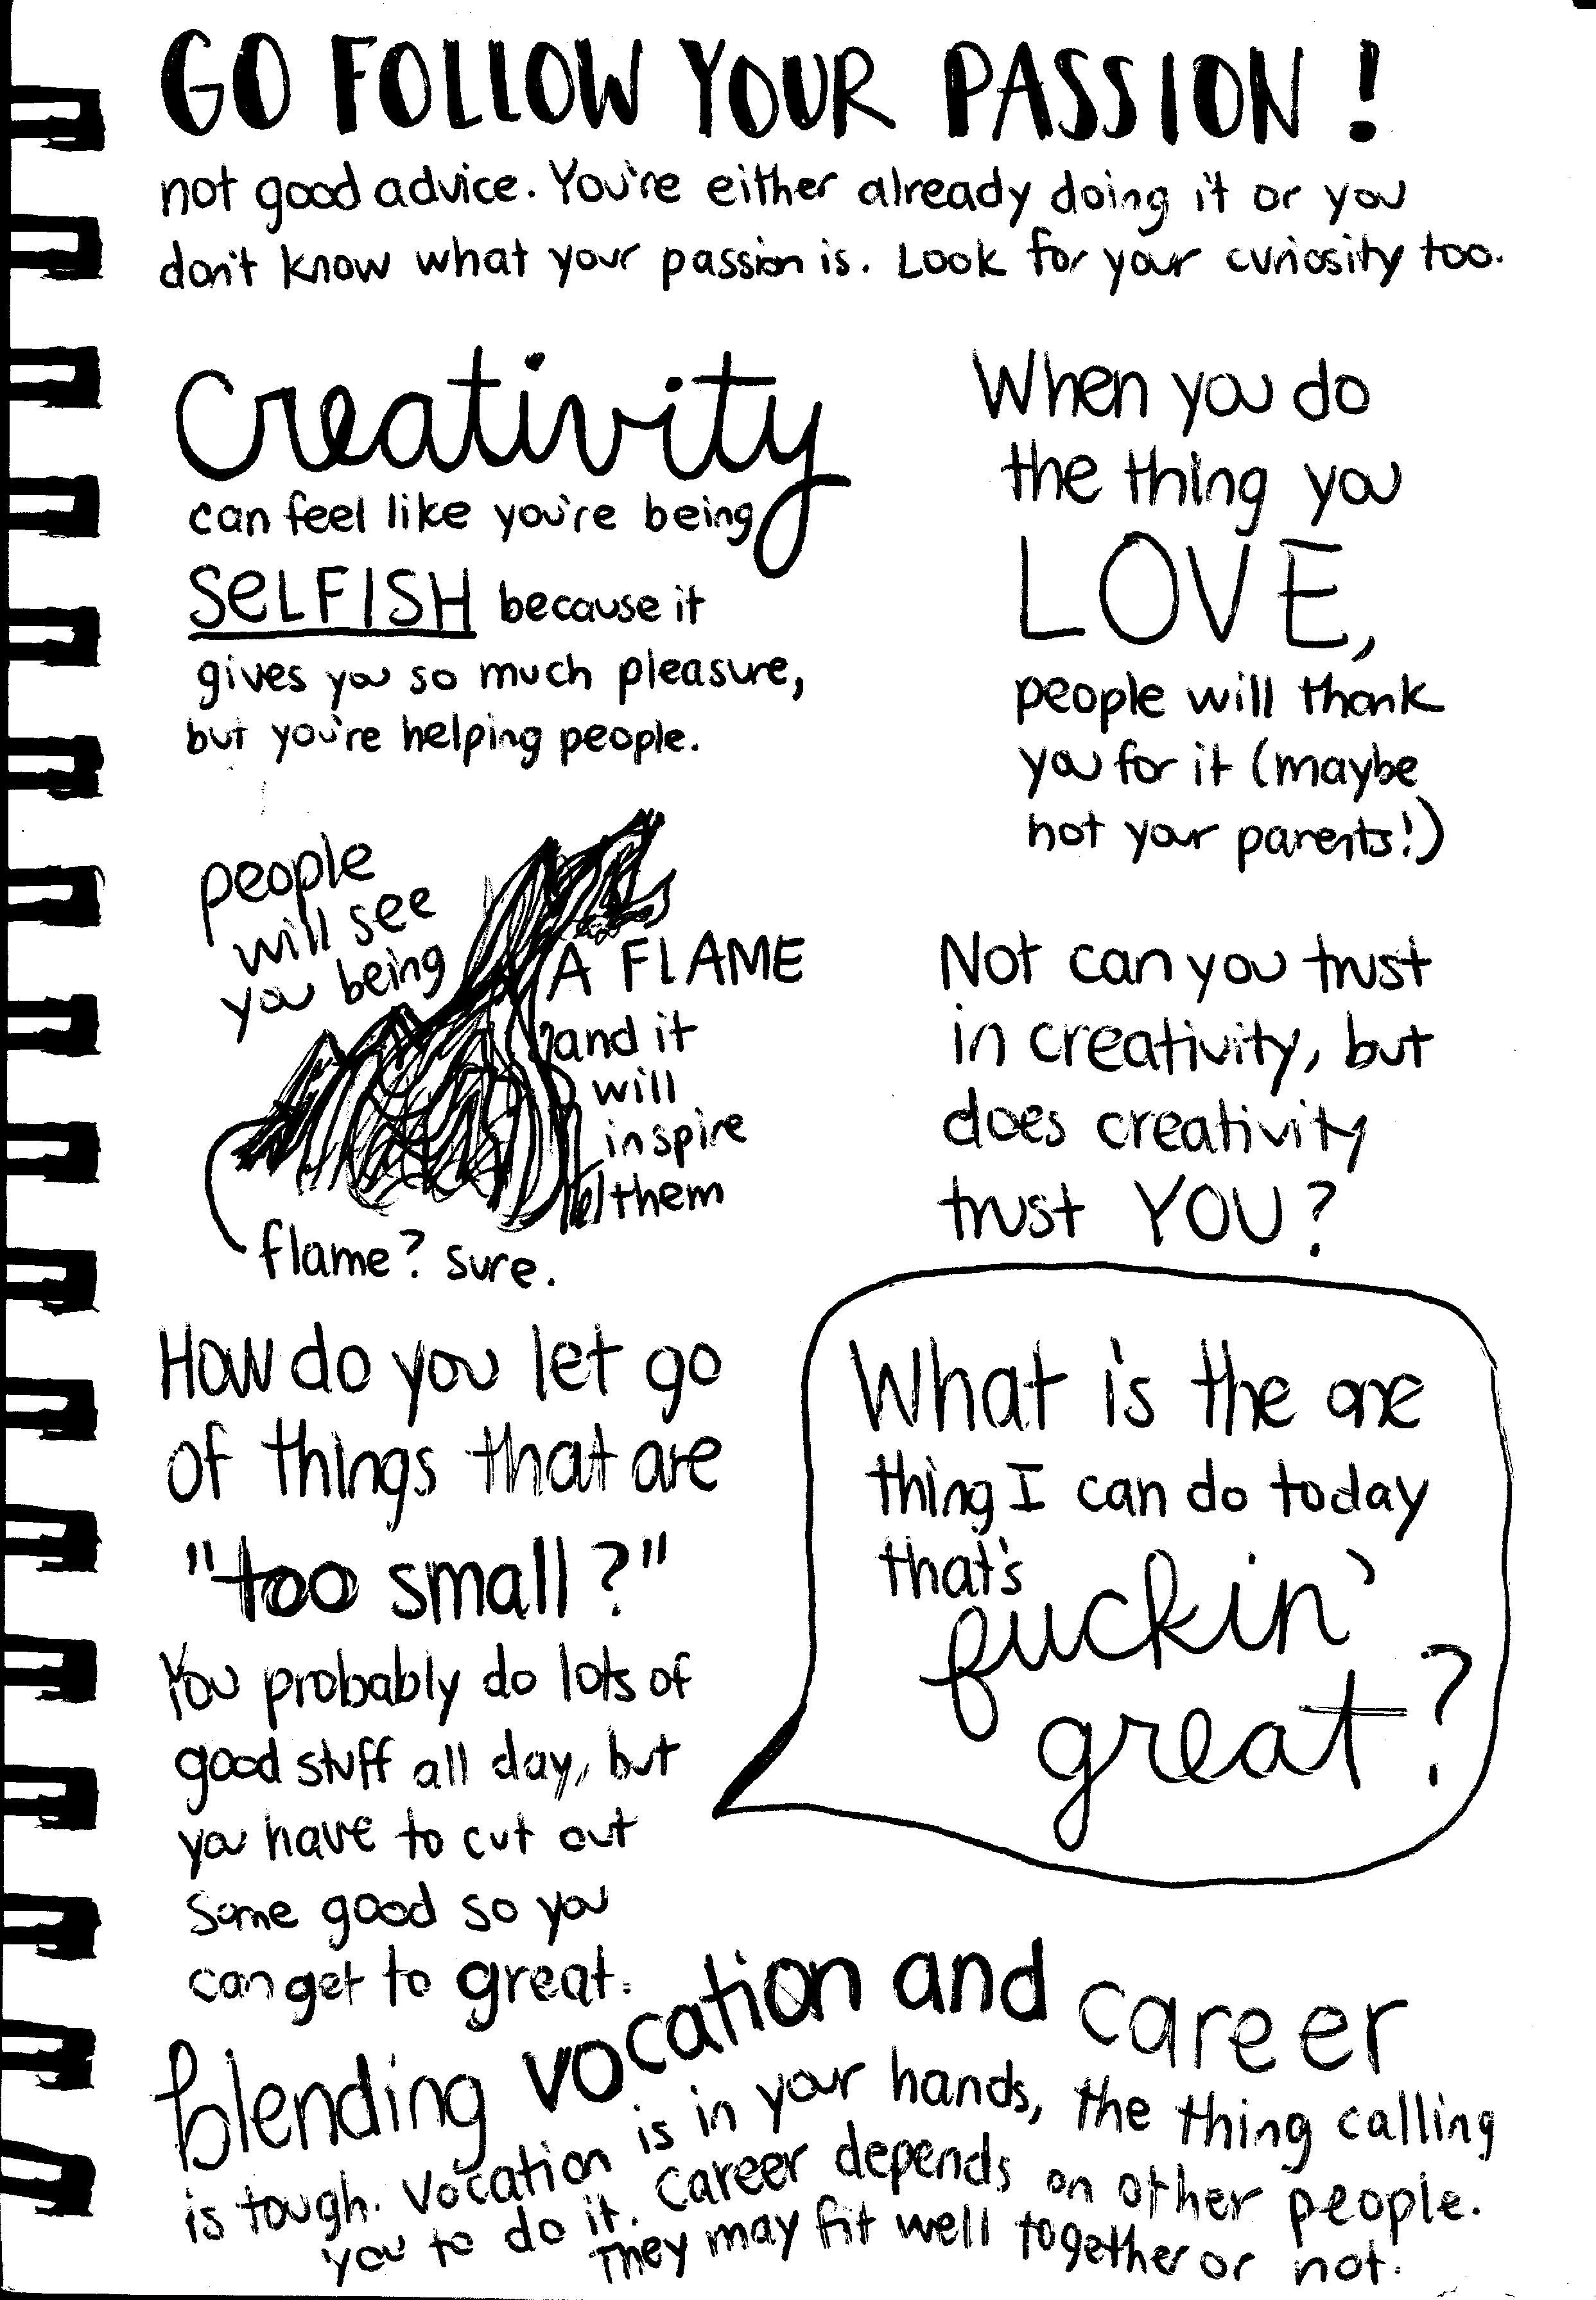 GO FOLLOW YOUR PASSION!
not good advice. You're either already doing it or you
don't know what your passion is. Look for your curiosity too.
Creativity
can feel like you're being
SELFISH because it
gives you so much pleasure,
but you're helping people.
When you do
the thing you
LOVE,
people will thank
you for it (maybe
not your parents!)
people
will see
you being
A FLAME
and it
will
inspire
them
flame? sure.
Not can you trust
in creativity, but
does creativity
trust YOU?
How do you let go
of things that are
"too small?"
You probably do lots of
good stuff all day, but
you have to cut out
some good so you
can get to great.
What is the one
thing I can do today
that's
fuckin'
great?
blending vocation and career
is tough. Vocation is in your hands, the thing calling
you to do it. Career depends on other people.
They may fit well together or not.